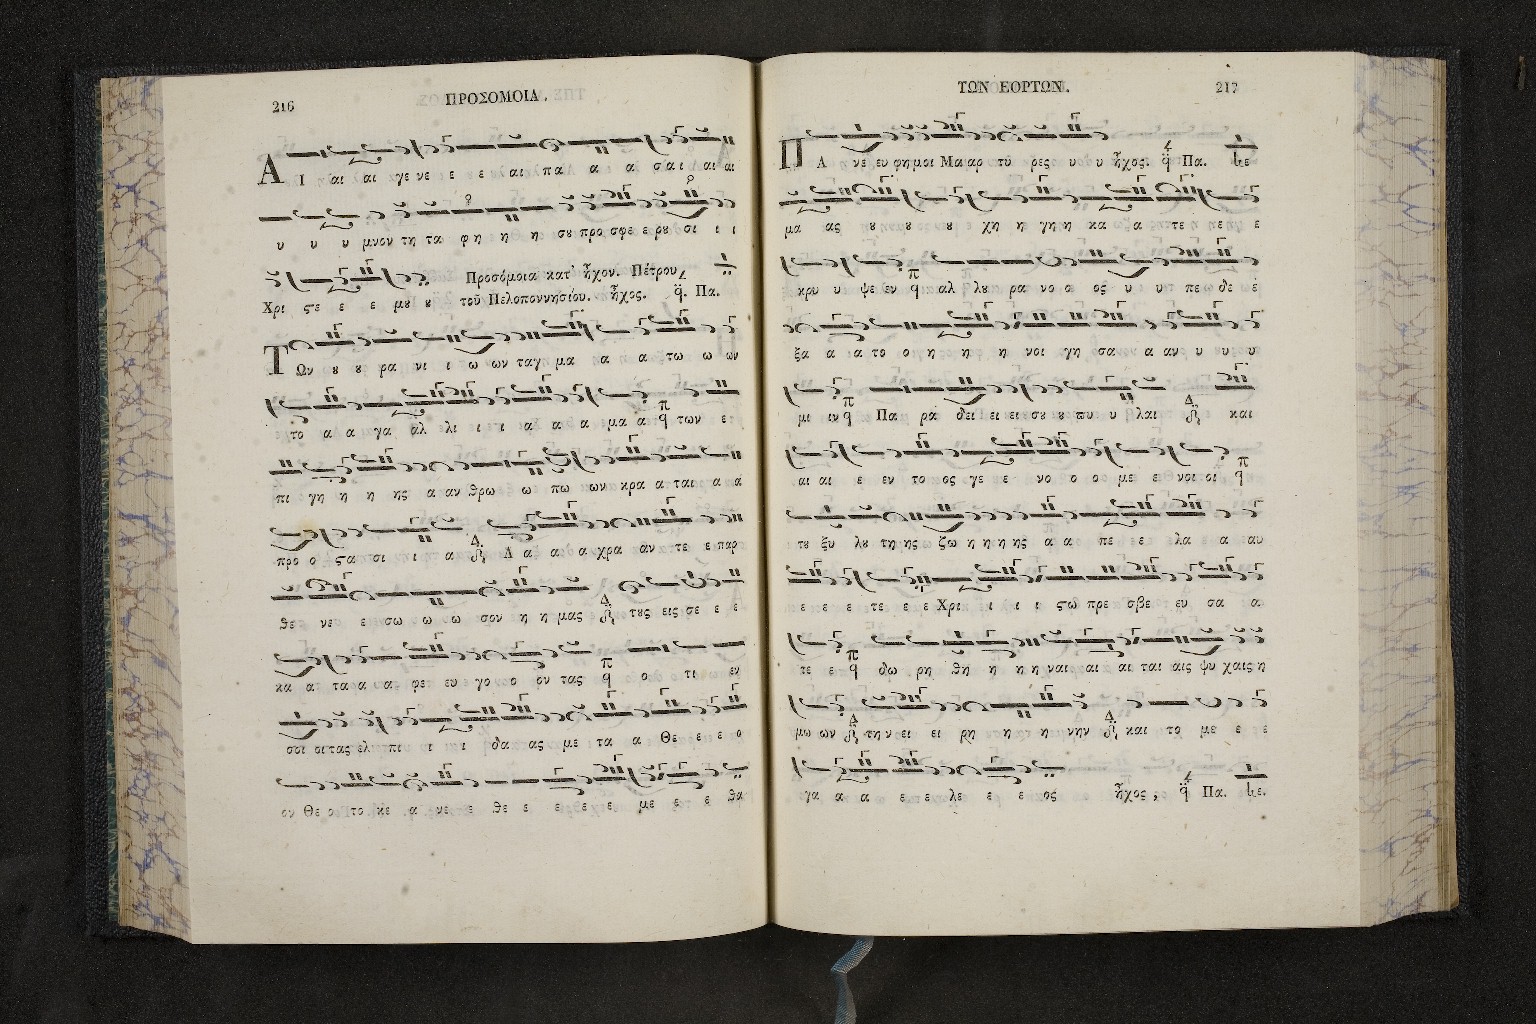 216
ΠΡΟΣΟΜΟΙΑ.
Α Ι αι αι γε νε ε ε αι πα α α σαι αι αι
υ υ υ μνον τη τα φη η η σȣ προ σφε ε ρȣ σι ι ι
Προσόμοια κατ' ἦχον. Πέτρου
Χρι ϛε ε ε μȣ ȣ τοῦ Πελοποννησίου. ἦχος. Πα.
Των ȣ ȣ ρα νι ι ω ων ταγ μα α α τω ω ων
το α α γα αλ λι ι ι α α α μα α των ε
πι γη η η ης α αν θρω ω πω ων κρα α ται α α
προ ο ϛα σι ι α Δ α α α χρα αν τε ε παρ
θε νε ε σω ω ω σον η η μας τȣς εις σε ε ε
κα α τα α α φε ευ γο ο ον τας ο τι εν
σοι οι τας ελ πι ι ι δα ας με τα α Θε ε ε ο
ον Θε ο το κε α νε ε θε ε ε θε ε με ε ε θα
ΤΩΝ ΕΟΡΤΩΝ.
217
Π Α νε ευ φη μοι Μα αρ τυ ρες υ υ ἦχος. Πα.
μα ας ȣ ȣ ȣ χη η γη η κα α α τε ε ε ε
κρυ υ ψε εν αλ λȣ ρα νο α ος υ υ πε δε ε
ξα α α το ο η η η η νοι γη σα α αν υ υ υ
μι ιν Πα ρα δει ει ει σȣ ȣ πυ υ λαι και
αι αι ε εν το ος γε ε νο ο ο με ε νοι οι
τȣ ξυ λȣ τη ης ζω η η η ης α α πε ε λα α αυ
ε ε ε τε ε ε Χρι ι ι ι ϛω πρε σβε ευ σα α
τε ε δω ρη θη η η η ναι αι αι ται αις ψυ χαις η
μω ων την ει ει ρη η η η νην και το με ε ε
γα α α ε ε λε ε ε ος ἦχος, Πα.